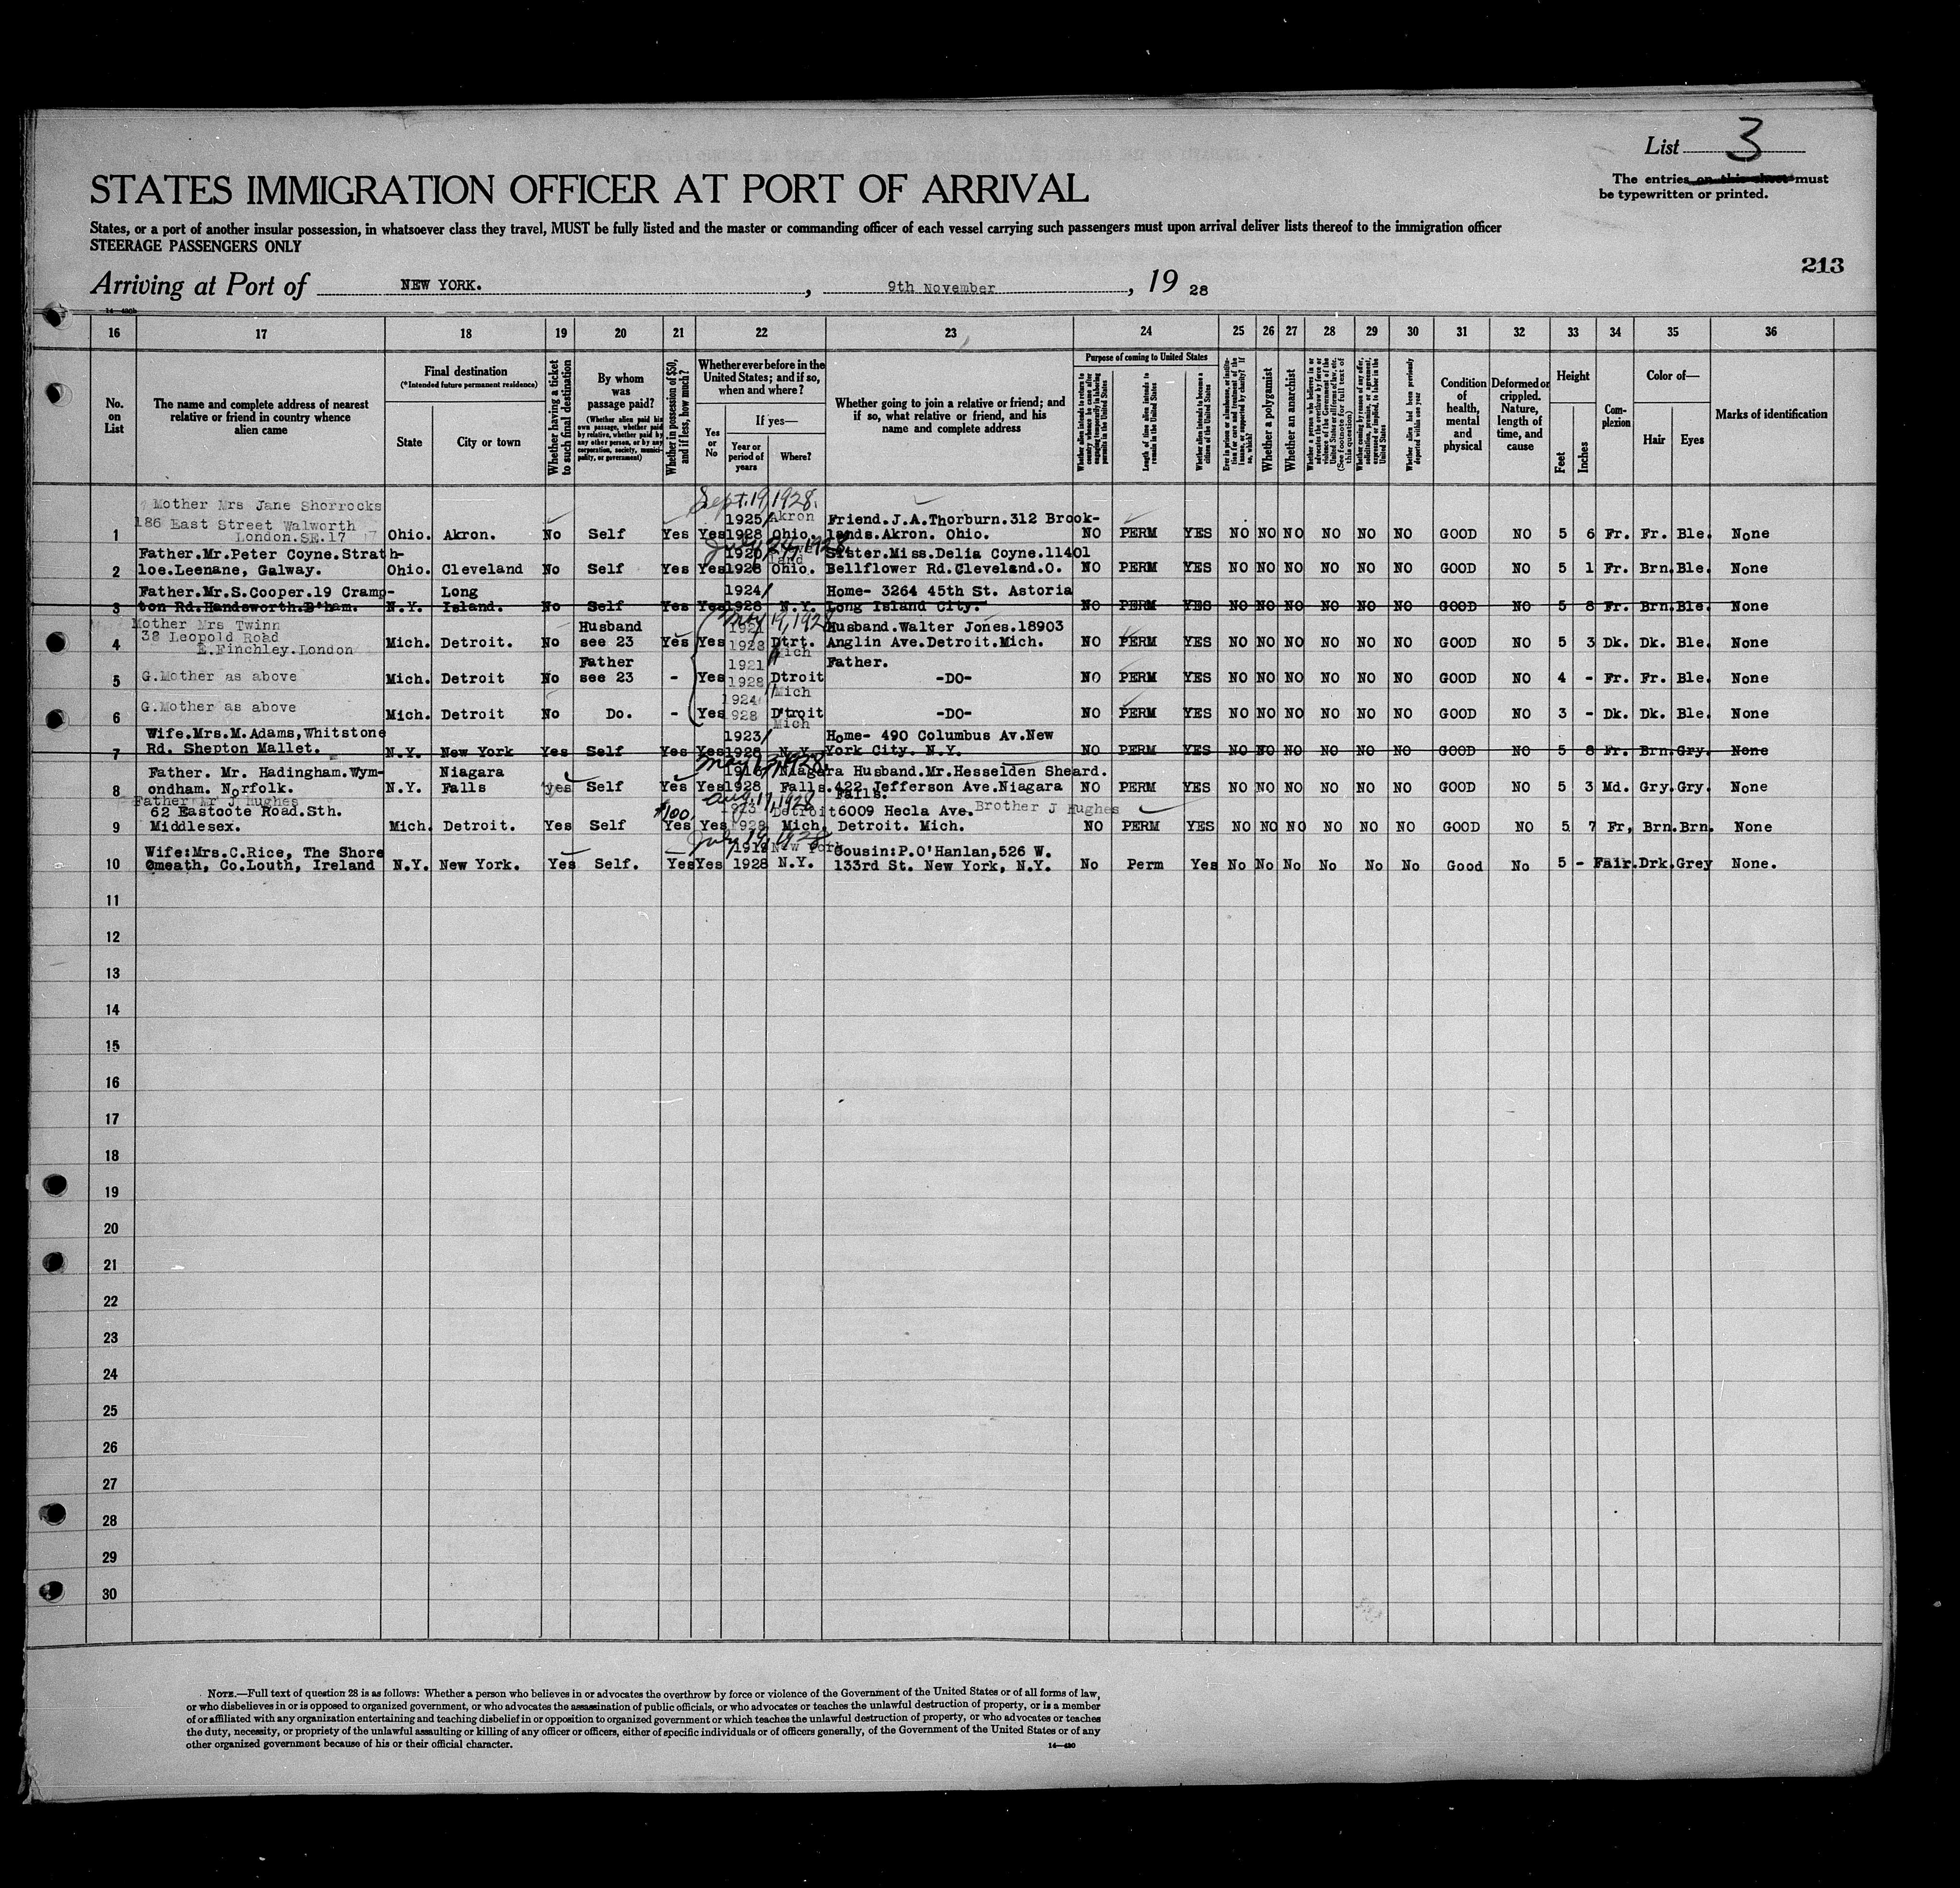 List 3
The entries on this sheet must
be typewritten or printed.
STATES IMMIGRATION OFFICER AT PORT OF ARRIVAL
States, or a port of another insular possession, in whatsoever class they travel, MUST be fully listed and the master or commanding officer of each vessel carrying such passengers must upon arrival deliver lists thereof to the immigration officer
STEERAGE PASSENGERS ONLY
213
Arriving at Port of NEW YORK. , 9th November , 19 28
16 17 18 19 20 21 22 23 24 25 26 27 28 29 30 31 32 33 34 35 36
No. on List
The name and complete address of nearest relative or friend in country whence alien came
Final destination
(*Intended future permanent residence)
State
City or town
Whether having a ticket to such final destination
By whom was passage paid?
(Whether alien paid his own passage, whether paid by relative, whether paid by any other person, or by any corporation, society, municipality, or government)
Whether in possession of $50, and if less, how much?
Whether ever before in the United States; and if so, when and where?
Yes or No
If yes—
Year or period of years
Where?
Whether going to join a relative or friend; and if so, what relative or friend, and his name and complete address
Purpose of coming to United States
Whether alien intends to return to country whence he came after engaging temporarily in laboring pursuits in the United States
Length of time alien intends to remain in the United States
Whether alien intends to become a citizen of the United States
Ever in prison or almshouse, or institution for care and treatment of the insane, or supported by charity? If so, which?
Whether a polygamist
Whether an anarchist
Whether a person who believes in or advocates the overthrow by force or violence of the Government of the United States or all forms of law, etc. (See footnote for full text of this question)
Whether coming by reason of any offer, solicitation, promise, or agreement, expressed or implied, to labor in the United States
Whether alien had been previously deported within one year
Condition of health, mental and physical
Deformed or crippled. Nature, length of time, and cause
Height
Feet
Inches
Complexion
Color of—
Hair
Eyes
Marks of identification
Mother Mrs Jane Shorrocks Sept. 19, 1928.
186 East Street Walworth 1925/ Akron Friend.J.A.Thorburn.312 Brook-
1 London.SE.17 Ohio. Akron. No Self Yes Yes 1928 Ohio. lands.Akron. Ohio. NO PERM YES NO NO NO NO NO NO GOOD NO 5 6 Fr. Fr. Ble. None
Father.Mr.Peter Coyne.Strath- July 24, 1928 Sister.Miss.Delia Coyne.11401
2 loe.Leenane, Galway. Ohio. Cleveland No Self Yes Yes 1928 Ohio. Bellflower Rd.Cleveland.O. NO PERM YES NO NO NO NO NO NO GOOD NO 5 1 Fr. Brn. Ble. None
Father.Mr.S.Cooper.19 Cramp- Long 1924/ Home- 3264 45th St. Astoria
3 ton Rd.Handsworth.B'ham. N.Y. Island. No Self Yes Yes 1928 N.Y. Long Island City. NO PERM YES NO NO NO NO NO NO GOOD NO 5 8 Fr. Brn. Ble. None
Mother Mrs Twinn May 19, 1928
38 Leopold Road Husband 1921 Husband.Walter Jones.18903
4 E.Finchley.London Mich. Detroit. No see 23 Yes Yes 1928 Dtrt. Mich Anglin Ave.Detroit.Mich. NO PERM YES NO NO NO NO NO NO GOOD NO 5 3 Dk. Dk. Ble. None
Father 1921 Father.
5 G.Mother as above Mich. Detroit No see 23 - Yes 1928 Dtroit Mich -DO- NO PERM YES NO NO NO NO NO NO GOOD NO 4 - Fr. Fr. Ble. None
1924
6 G.Mother as above Mich. Detroit No Do. - Yes 1928 D'troit Mich -DO- NO PERM YES NO NO NO NO NO NO GOOD NO 3 - Dk. Dk. Ble. None
Wife.Mrs.M.Adams,Whitstone 1923/ Home- 490 Columbus Av.New
7 Rd. Shepton Mallet. N.Y. New York Yes Self Yes Yes 1928 N.Y. York City. N.Y. NO PERM YES NO NO NO NO NO NO GOOD NO 5 8 Fr. Brn. Gry. None
Father. Mr. Hadingham.Wym- Niagara 1928. Niagara Husband.Mr.Hesselden Sheard.
8 ondham. Norfolk. N.Y. Falls yes Self Yes Yes 1928 Falls. 422 Jefferson Ave.Niagara Falls. NO PERM YES NO NO NO NO NO NO GOOD NO 5 3 Md. Gry. Gry. None
Father Mr J Hughes Aug. 17, 1928
62 Eastcote Road.Sth. $100. 1923 Detroit 6009 Hecla Ave. Brother J Hughes
9 Middlesex. Mich. Detroit. Yes Self Yes Yes 1928 Mich. Detroit. Mich. NO PERM YES NO NO NO NO NO NO GOOD NO 5 7 Fr, Brn. Brn. None
Wife:Mrs.C.Rice, The Shore July 19, New York Cousin:P.O'Hanlan,526 W.
10 Omeath, Co.Louth, Ireland N.Y. New York. Yes Self. Yes Yes 1928 N.Y. 133rd St. New York, N.Y. No Perm Yes No No No No No No Good No 5 - Fair. Drk. Grey None.
11
12
13
14
15
16
17
18
19
20
21
22
23
24
25
26
27
28
29
30
NOTE.—Full text of question 28 is as follows: Whether a person who believes in or advocates the overthrow by force or violence of the Government of the United States or of all forms of law,
or who disbelieves in or is opposed to organized government, or who advocates the assassination of public officials, or who advocates or teaches the unlawful destruction of property, or is a member
of or affiliated with any organization entertaining and teaching disbelief in or opposition to organized government or which teaches the unlawful destruction of property, or who advocates or teaches
the duty, necessity, or propriety of the unlawful assaulting or killing of any officer or officers, either of specific individuals or of officers generally, of the Government of the United States or of any
other organized government because of his or their official character.
14—420